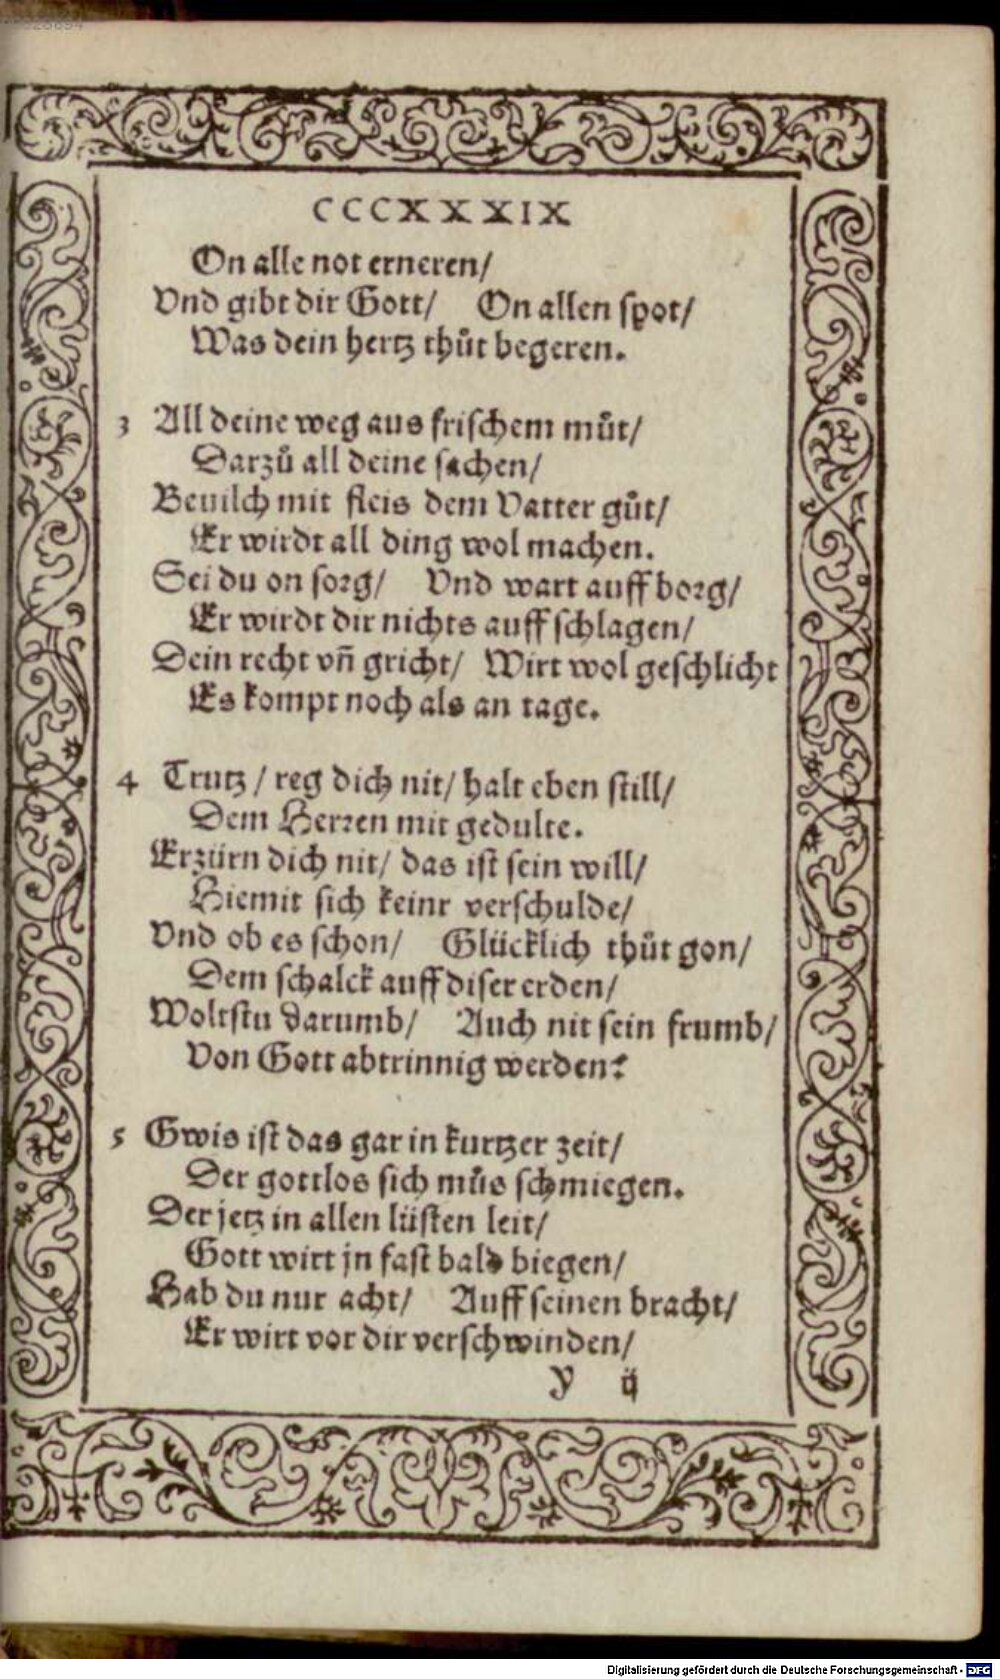 CCCXXXIX
On alle not erneren/
Vnd gibt dir Gott/ On allen spot/
Was dein hertz thůt begeren.
3 All deine weg aus frischem můt/
Darzů all deine sachen/
Beuilch mit fleis dem Vatter gůt/
Er wirdt all ding wol machen.
Sei du on sorg/ Vnd wart auff borg/
Er wirdt dir nichts auff schlagen/
Dein recht vn̄ gricht/ Wirt wol geschlicht
Es kompt noch als an tage.
4 Trutz / reg dich nit/ halt eben still/
Dem Herren mit gedulte.
Erzürn dich nit/ das ist sein will/
Hiemit sich keinr verschulde/
Vnd ob es schon/ Glücklich thůt gon/
Dem schalck auff diser erden/
Woltstu darumb/ Auch nit sein frumb/
Von Gott abtrinnig werden?
5 Gwis ist das gar in kurtzer zeit/
Der gottlos sich můs schmiegen.
Der jetz in allen lüsten leit/
Gott wirt jn fast bald biegen/
Hab du nur acht/ Auff seinen bracht/
Er wirt vor dir verschwinden/
y ij
Digitalisierung gefördert durch die Deutsche Forschungsgemeinschaft - DFG